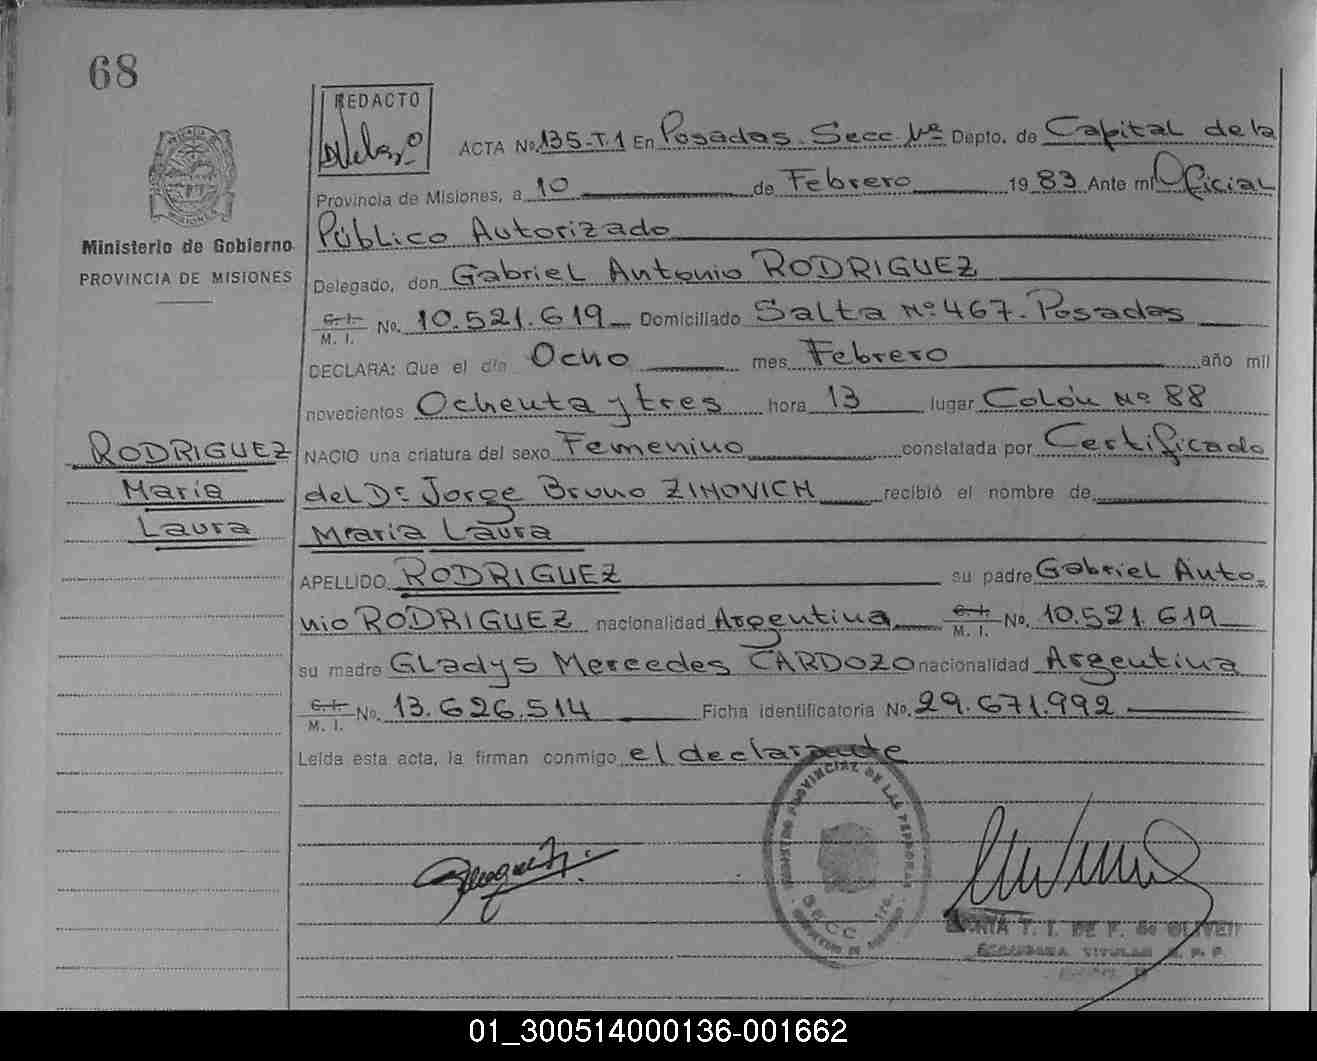 68
REDACTO
ACTA No. 135-T.1 En Posadas. Secc. 1ra Depto. de Capital de la
Provincia de Misiones, a 10 de Febrero 1983 Ante mi Oficial
Público Autorizado
Ministerio de Gobierno
PROVINCIA DE MISIONES
Delegado, don Gabriel Antonio RODRIGUEZ
C. I. M. I. No. 10.521.619 Domiciliado Salta Nº 467. Posadas
DECLARA: Que el día Ocho mes Febrero año mil
novecientos Ochenta y tres hora 13 lugar Colón Nº 88
RODRIGUEZ
María
Laura
NACIO una criatura del sexo Femenino constatada por Certificado
del Dr. Jorge Bruno ZIMOVICH recibió el nombre de
María Laura
APELLIDO RODRIGUEZ su padre Gabriel Anto
nio RODRIGUEZ nacionalidad Argentina C. I. M. I. No. 10.521.619
su madre Gladys Mercedes CARDOZO nacionalidad Argentina
C. I. M. I. No. 13.626.514 Ficha identificatoria No. 29.671.992
Leída esta acta, la firman conmigo el declarante
REGISTRO PROVINCIAL DE LAS PERSONAS
SECC. 1ra.
01_300514000136-001662